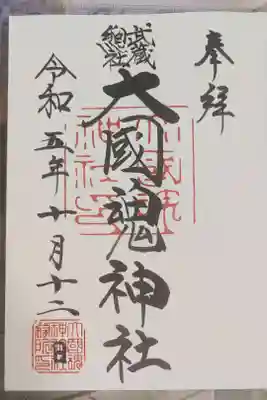 奉拝
武蔵
総社
大國魂神社
令和五年十月十二日